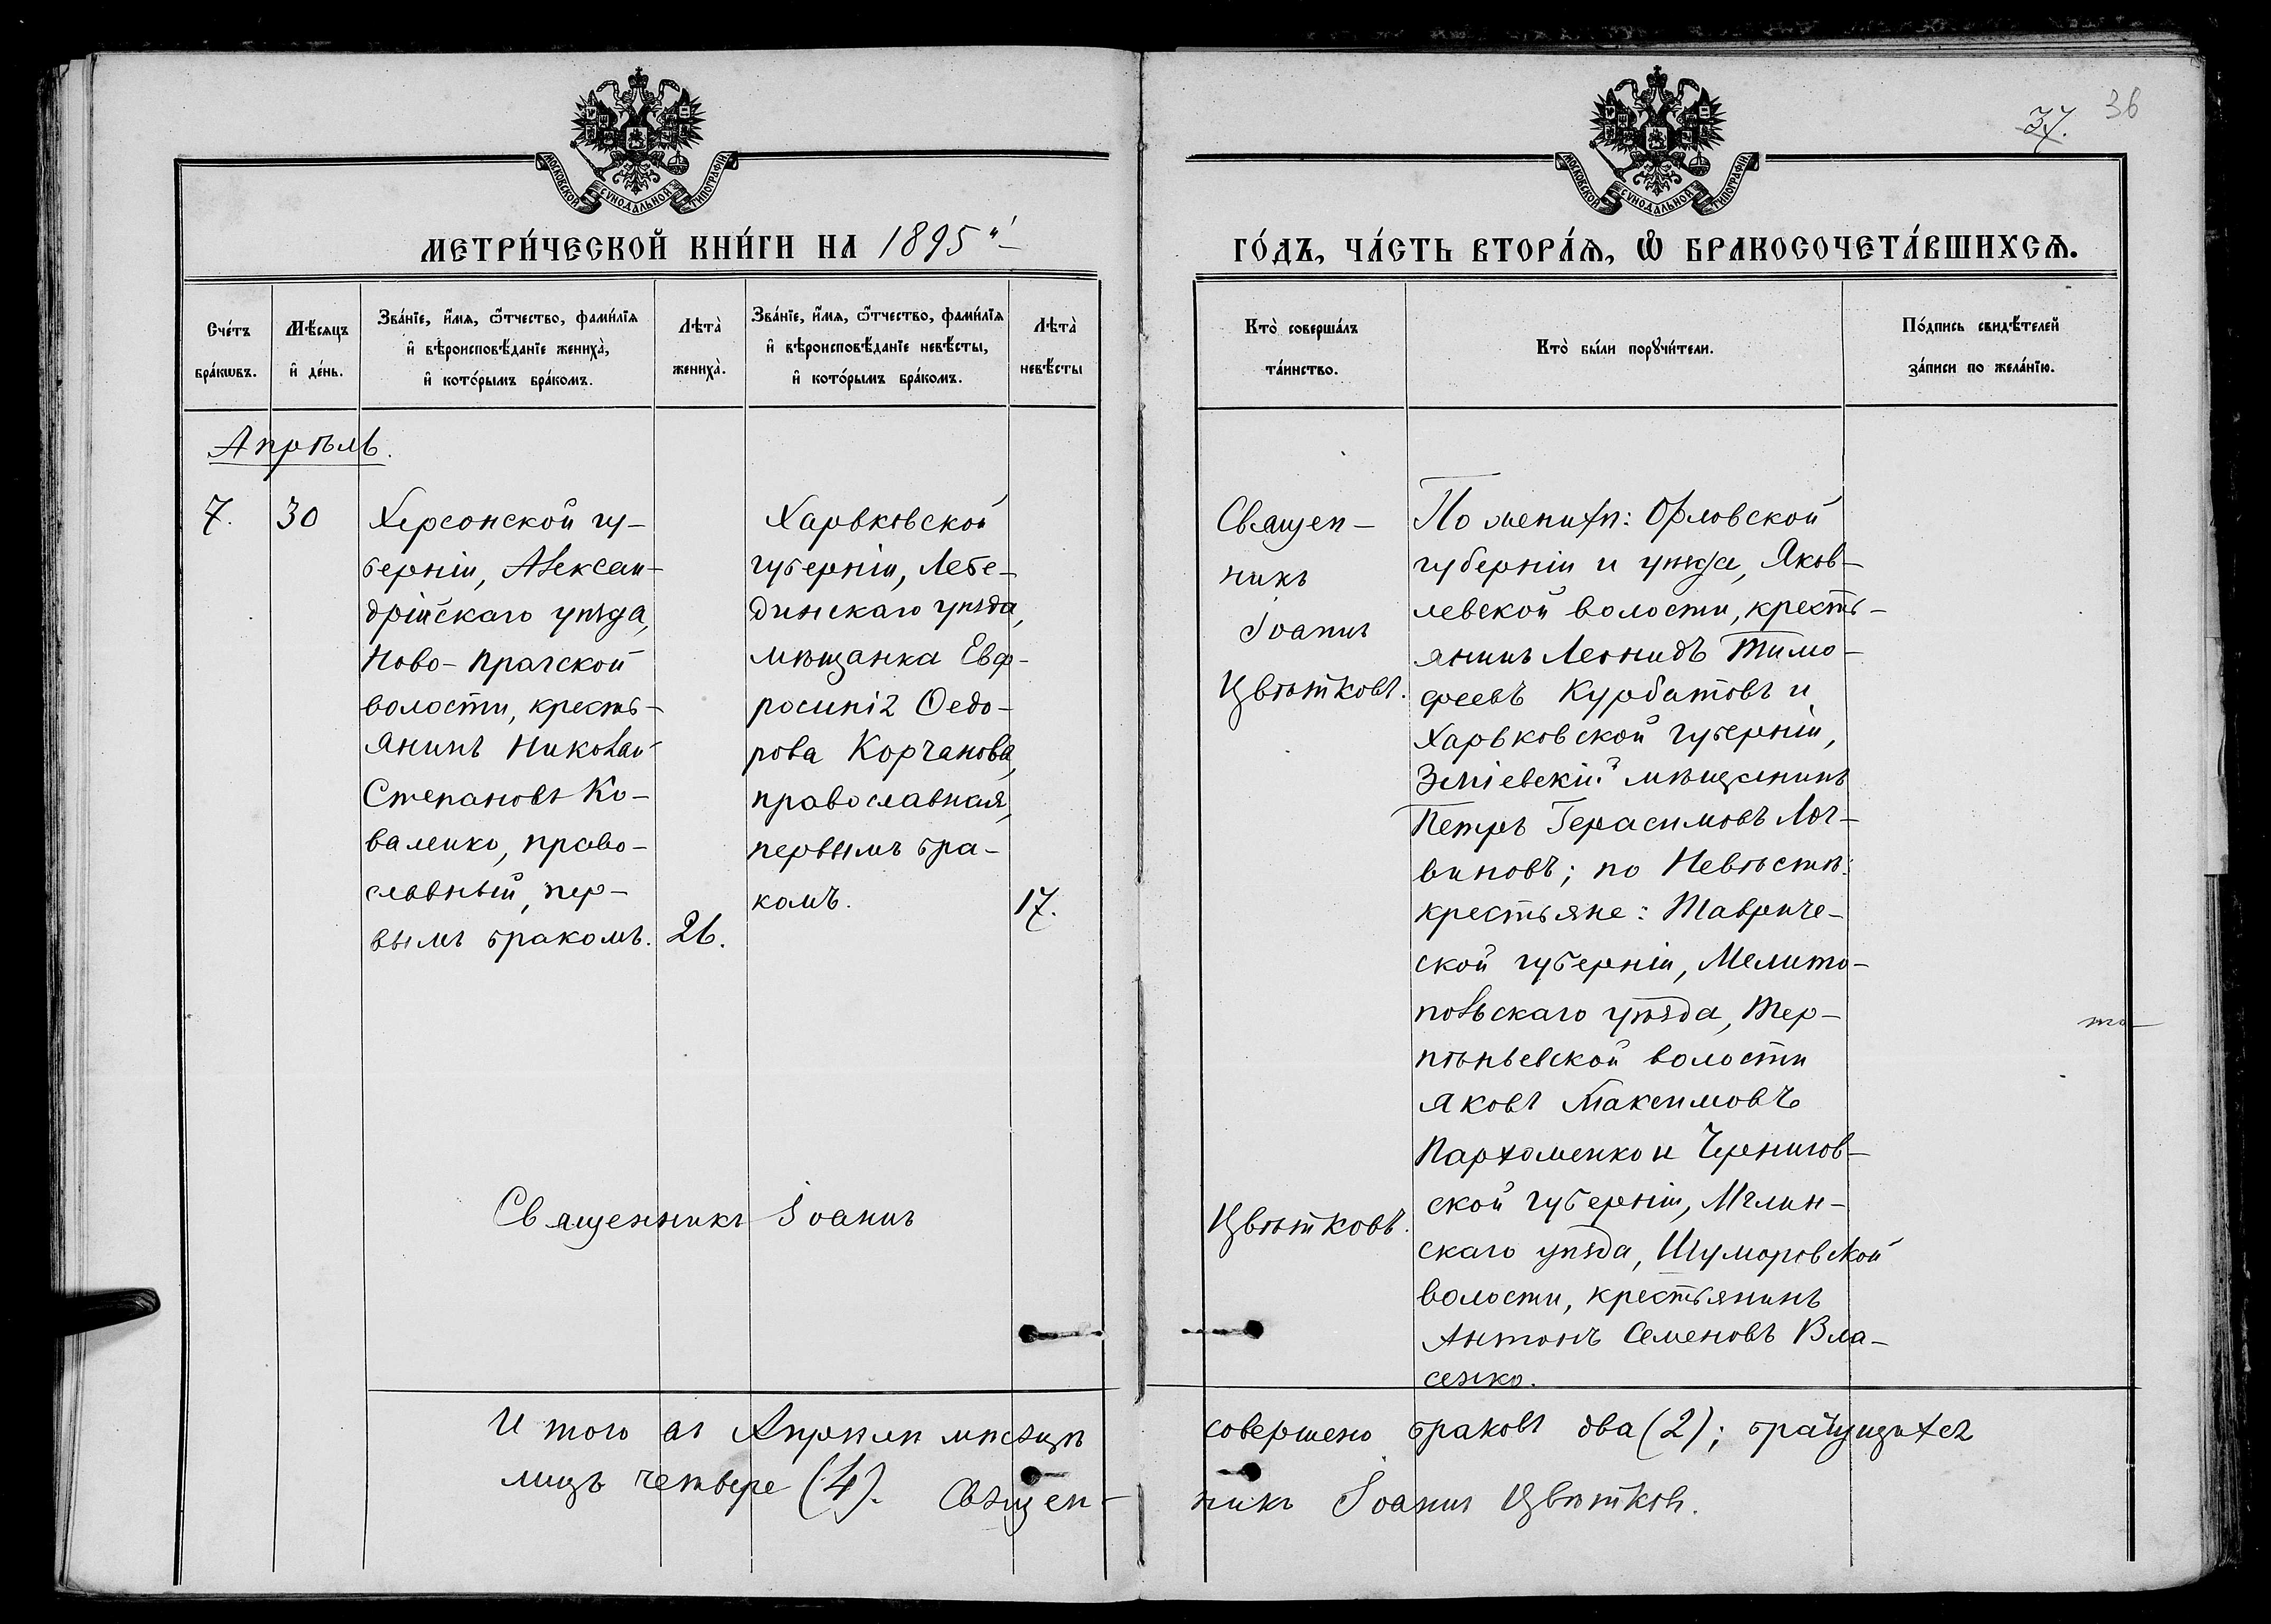 37. 36
МОСКОВСКОЙ СѴНОДАЛЬНОЙ ТИПОГРАФІИ
МОСКОВСКОЙ СѴНОДАЛЬНОЙ ТИПОГРАФІИ
МЕТРИ́ЧЕСКОЙ КНИ́ГИ НА 1895й
ГО́ДЪ, ЧА́СТЬ ВТОРА́Ѧ, Ѽ БРАКОСОЧЕТА́ВШИХСѦ.
Сче́тъ
бра́кѡвъ.
Мѣ́сяцъ
и҆ де́нь.
Зва́нїе, и҆́мя, ѻ҆́тчество, фами́лїя
и҆ вѣроисповѣ́данїе жениха̀,
и҆ кото́рымъ бра́комъ.
Лѣта̀
жениха̀.
Зва́нїе, и҆́мя, ѻ҆́тчество, фами́лїя
и҆ вѣроисповѣ́данїе невѣ́сты,
и҆ кото́рымъ бра́комъ.
Лѣта̀
невѣ́сты
Кто̀ соверша́лъ
та́инство.
Кто̀ бы́ли порꙋчи́тели.
По́дпись свидѣ́телей
за́писи по жела́нїю.
Апрѣль.
7.
30
Херсонской гу-
берніи, Алексан-
дрійскаго уѣзда,
Ново-Прагской
волости, кресть-
янинъ Николай
Степановъ Ко-
валенко, право-
славный, пер-
вымъ бракомъ.
26.
Харьковской
губерніи, Лебе-
динскаго уѣзда,
мѣщанка Евф-
росинія Ѳедо-
рова Корчанова,
православная,
первымъ бра-
комъ.
17.
Священ-
никъ
Іоаннъ
Цвѣтковъ.
По женихѣ: Орловской
губерніи и уѣзда, Яков-
левской волости, кресть-
янинъ Леонидъ Тимо-
феевъ Курбатовъ и
Харьковской губерніи,
Зміевскій мѣщанинъ
Петръ Герасимовъ Лог-
виновъ; по Невѣстѣ:
крестьяне: Тавриче-
ской губерніи, Мелито-
польскаго уѣзда, Тер-
пѣньевской волости
Яковъ Максимовъ
Пархоменко и Чернигов-
ской губерніи, Мглин-
скаго уѣзда, Шуморовской
волости, крестьянинъ
Антонъ Семеновъ Вла-
сенко.
Священникъ Іоаннъ Цвѣтковъ.
Итого въ Апрѣлѣ мѣсяцѣ совершено браковъ два (2); брачущихся
лицъ четверо (4). Священ-никъ Іоаннъ Цвѣтковъ.